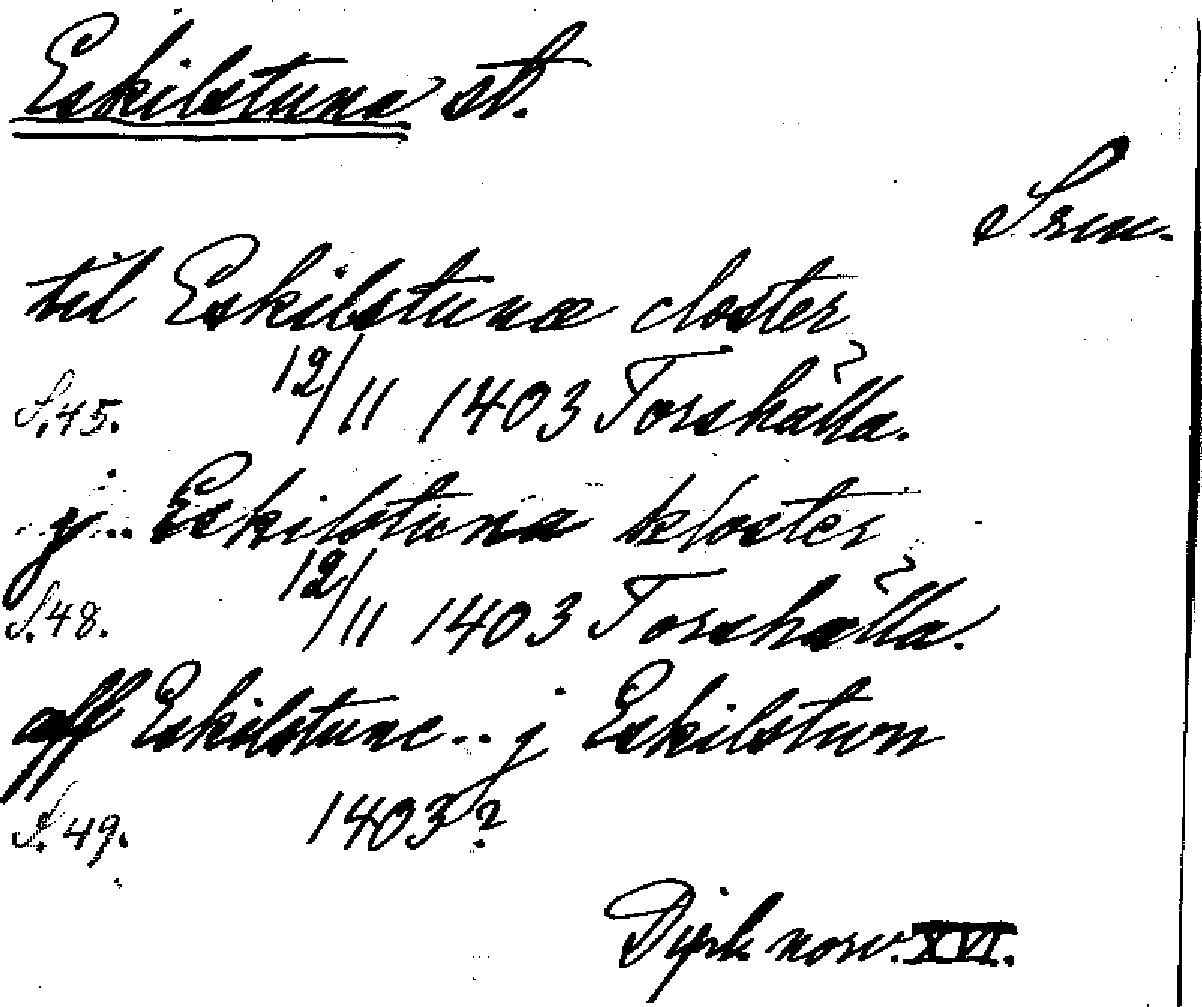 Eskilstuna st.
Srm.
til Eskilstunæ closter
S. 45. 12/11 1403 Torshälla.
j .. Eskilstuna kloster
S. 48. 12/11 1403 Torshälla.
aff Eskilstune .. j Eskilstun
S. 49. 1403?
Dipl. norv. XVI.